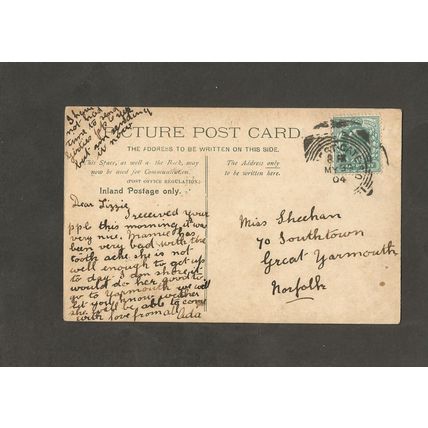 I have
not had
time to send
Lizzie's ppc to yet
but am sending
it now
PICTURE POST CARD.
THE ADDRESS TO BE WRITTEN ON THIS SIDE.
This Space, as well as the Back, may
now be used for Communication.
(POST OFFICE REGULATION).
Inland Postage only.
The Address only
to be written here.
MY
04
Dear Lizzie
I received your
ppc this morning it was
very nice. Mamie has
been very bad with the
tooth ache she is not
well enough to get up
to day. I don't think it
would do her good to
go to Yarmouth we will
let you know weather
she will be able to come
with love from all Ada
Miss Sheehan
70 Southtown
Great Yarmouth
Norfolk